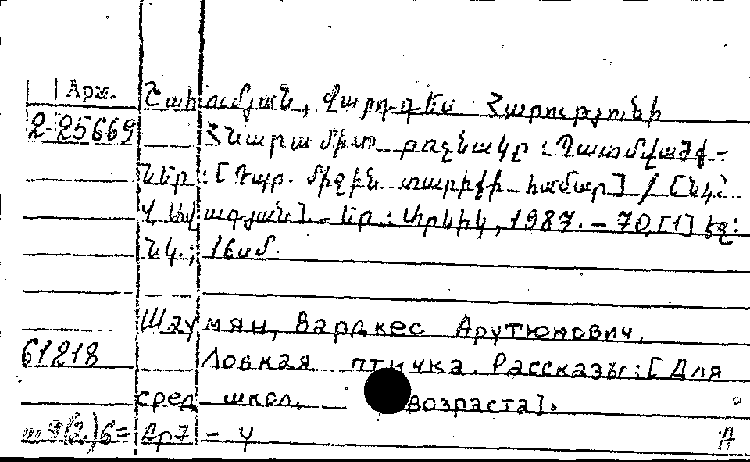 Арм. Շահումյան, Վարդգես Հարությունի
2-25669 Հնարամիտ թռչնակը : Պատմվածք-
ներ : [Դպր. միջին տարիքի համար] / [Նկ.՝
Եր. : Արևիկ, 1987. – 70,[1] էջ:
նկ.; 16սմ.
Шаумян, Вардкес Арутюнович.
61218 Ловкая птичка. Рассказы : [Для
сред. школ. возраста].
6= Ар7 – 4 А